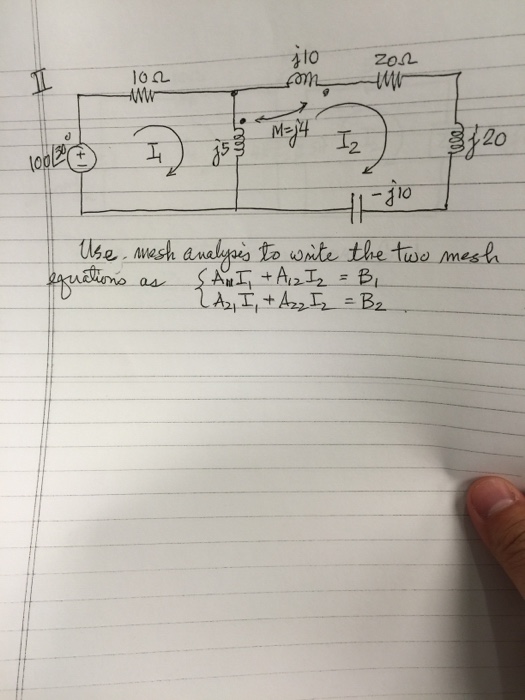 II
10Ω
j10
20Ω
100∠30° +
−
I₁
j5
M=j4
I₂
j20
-j10
Use mesh analysis to write the two mesh
equations as { A₁₁I₁ + A₁₂I₂ = B₁
{ A₂₁I₁ + A₂₂I₂ = B₂